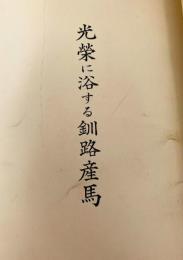 光榮に浴する釧路産馬